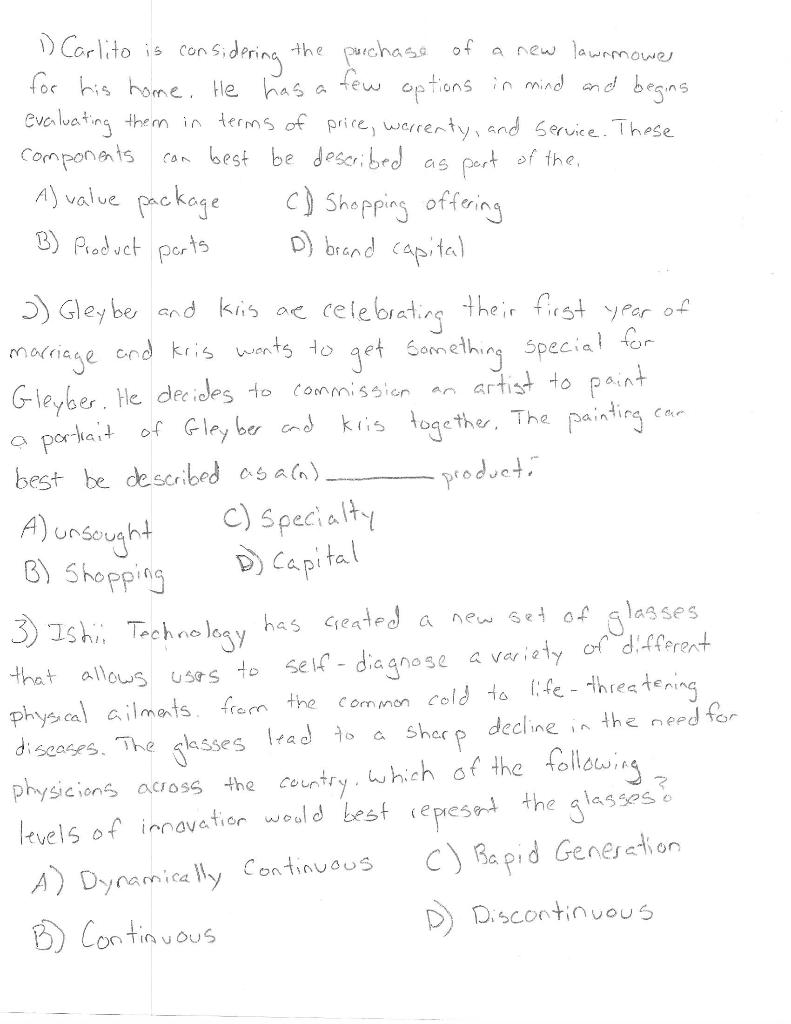 1) Carlito is considering the purchase of a new lawnmower
for his home. He has a few options in mind and begins
evaluating them in terms of price, warrenty, and service. These
components can best be described as part of the.
A) value package C) Shopping offering
B) Product parts D) brand capital
2) Gleyber and Kris are celebrating their first year of
marriage and kris wants to get something special for
Gleyber. He decides to commission an artist to paint
a portrait of Gleyber and kris together. The painting can
best be described as a(n) ________ product.
A) unsought C) Specialty
B) Shopping D) Capital
3) Ishii Technology has created a new set of glasses
that allows users to self-diagnose a variety of different
physical ailments. from the common cold to life-threatening
diseases. The glasses lead to a sharp decline in the need for
physicians across the country. which of the following
levels of innovation would best represent the glasses?
A) Dynamically Continuous C) Rapid Generation
B) Continuous D) Discontinuous